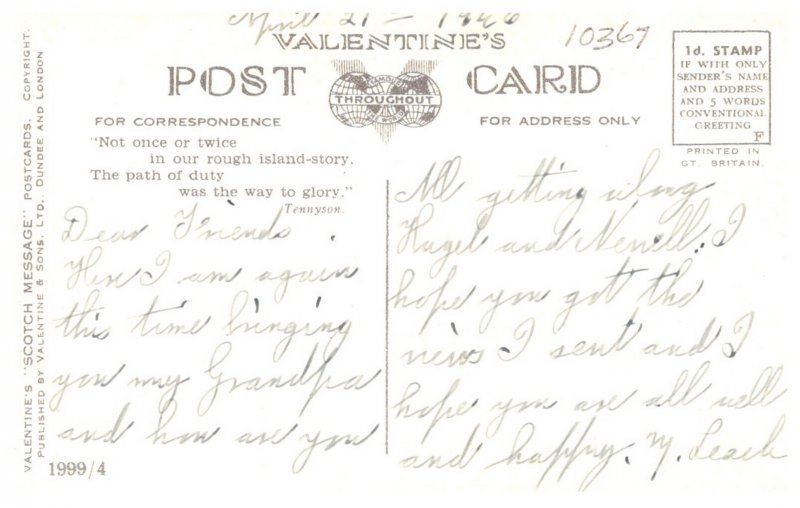 April 21 - 1946
10367
VALENTINE'S
POST CARD
FAMOUS
THROUGHOUT
THE WORLD
FOR CORRESPONDENCE
FOR ADDRESS ONLY
1d. STAMP
IF WITH ONLY
SENDER'S NAME
AND ADDRESS
AND 5 WORDS
CONVENTIONAL
GREETING
F
PRINTED IN
GT. BRITAIN.
"Not once or twice
in our rough island-story.
The path of duty
was the way to glory."
Tennyson.
Dear Friends.
Here I am again
this time bringing
you my Grandpa
and how are you
All getting along
Hazel and I
hope you got the
news I sent and I
hope you are all well
and happy. M. Leach
VALENTINE'S "SCOTCH MESSAGE" POSTCARDS. COPYRIGHT.
PUBLISHED BY VALENTINE & SONS, LTD., DUNDEE AND LONDON
1999/4